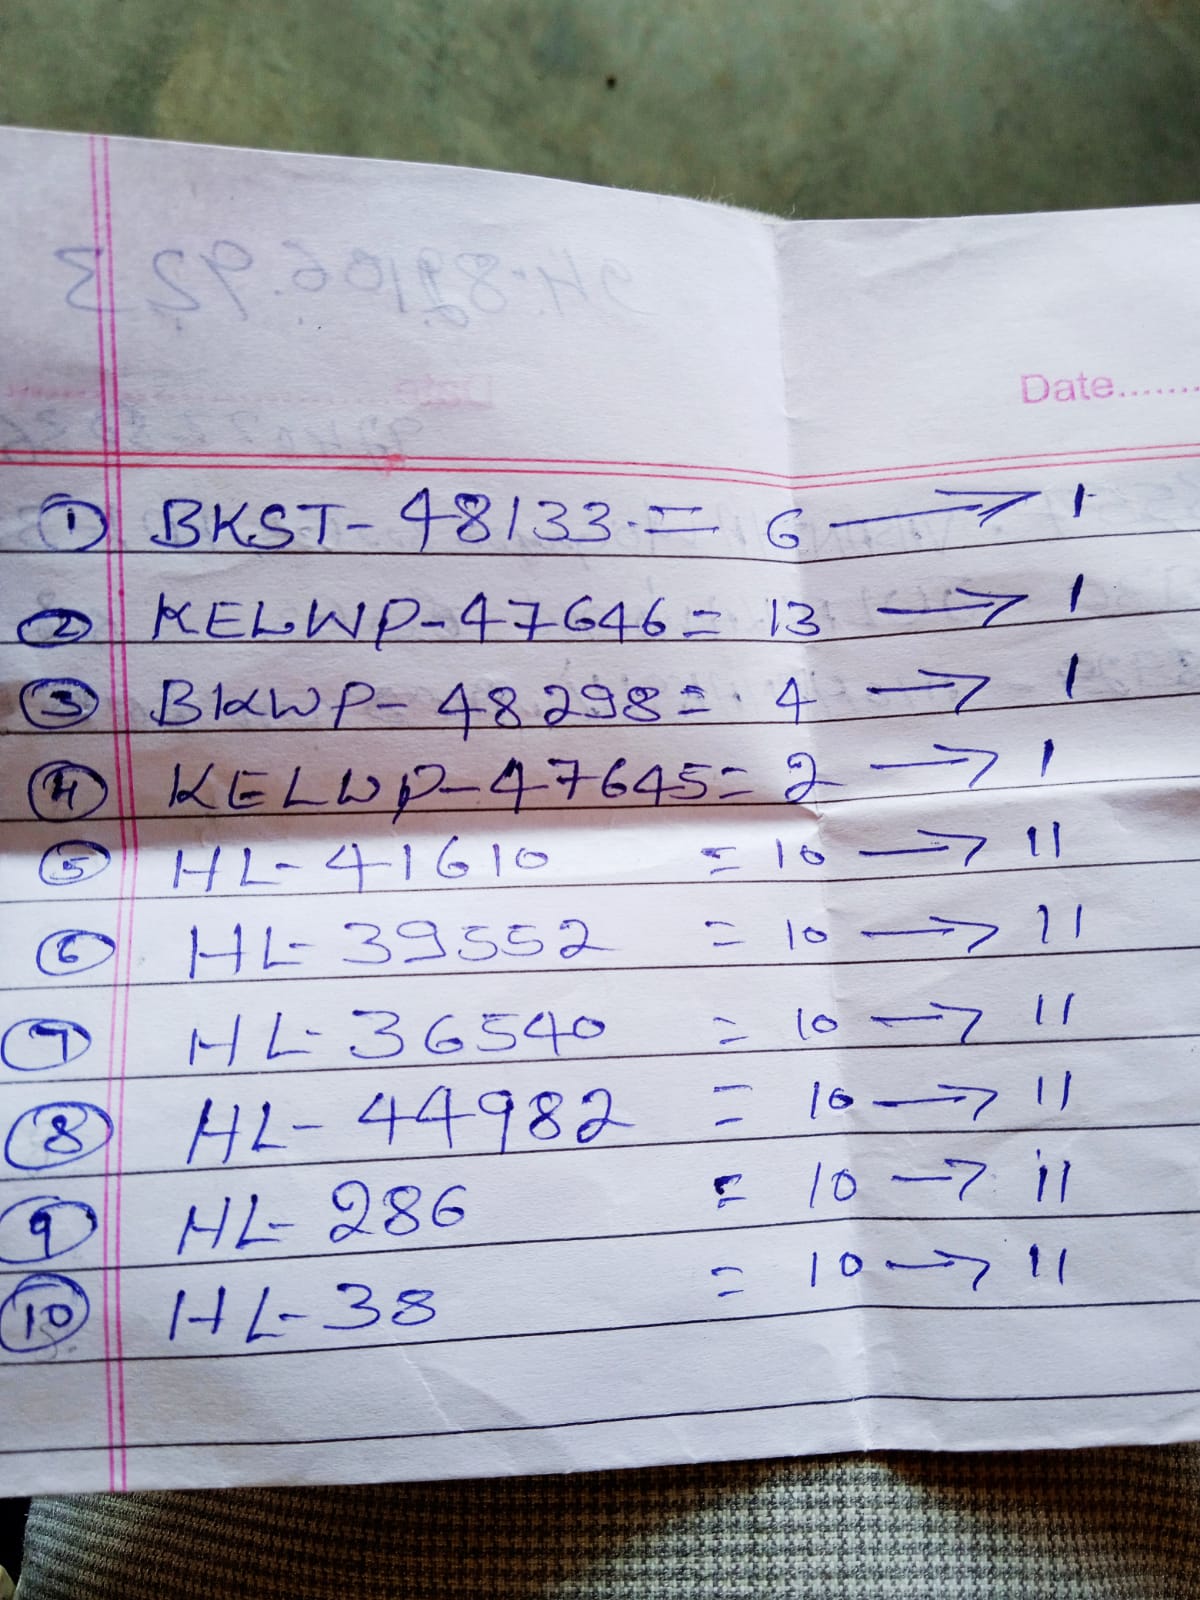 Date.......
① BKST-48133.= 6 → 1
② KELWP-47646= 13 → 1
③ BKWP-48298= 4 → 1
④ KELWP-47645= 2 → 1
⑤ HL-41610 = 10 → 11
⑥ HL-39552 = 10 → 11
⑦ HL-36540 = 10 → 11
⑧ HL-44982 = 10 → 11
⑨ HL-286 = 10 → 11
⑩ HL-38 = 10 → 11